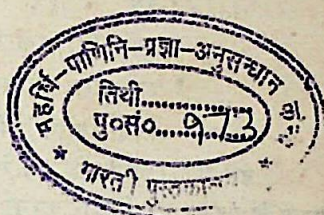 महर्षि-पाणिनि-प्रज्ञा-अनुसन्धान
तिथी..............
पु०सं०.....973
* भारती *